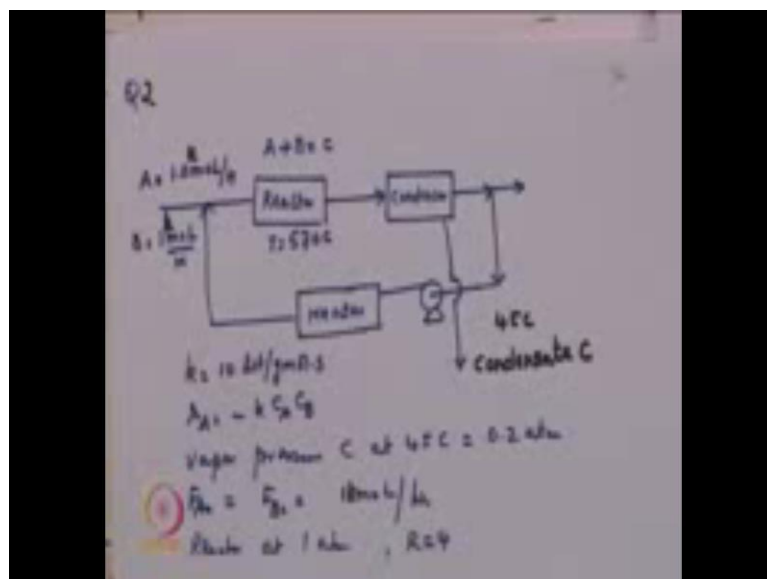 Q2
A+B= C
A= 1.0mol/
Reactor
B= 1mol
T=570C
Condenser
45C
Condensate C
k= 10 lit/gmol.s
= - k CA CB
vapor pressure C at 45C = 0.2 atm
FA0 = FB0 = mol/hr
Reactor at 1 atm , R=4